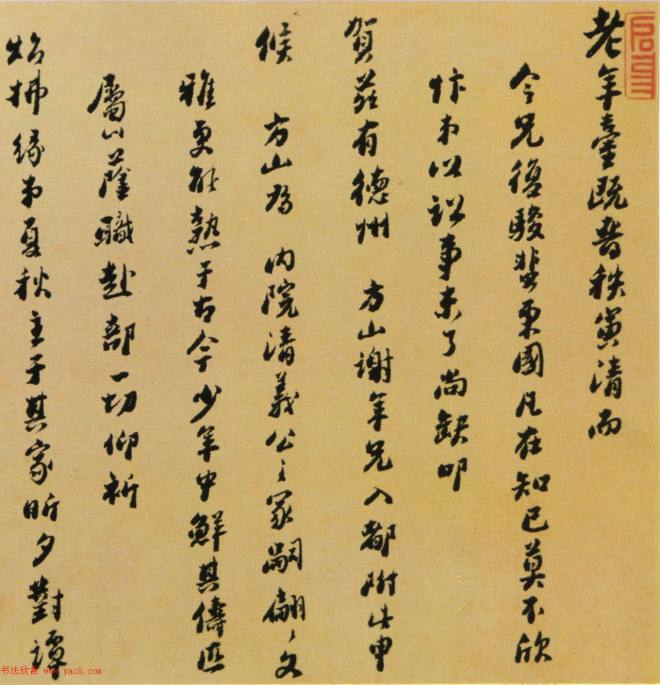 老年臺既晉秩寅清而
令兄復駿蜚東國凡在知己莫不欣
忭弟以訟事未了尚缺叩
賀茲有德州 方山謝年兄入都附此申
候 方山為 內院清義公之冢嗣翩翩文
雅更能熟于古今少年中鮮其儔匹
屬以蔭職赴部一切仰祈
炤拂緣弟夏秋主于其家昕夕對譚
书法欣赏 www.yac8.com